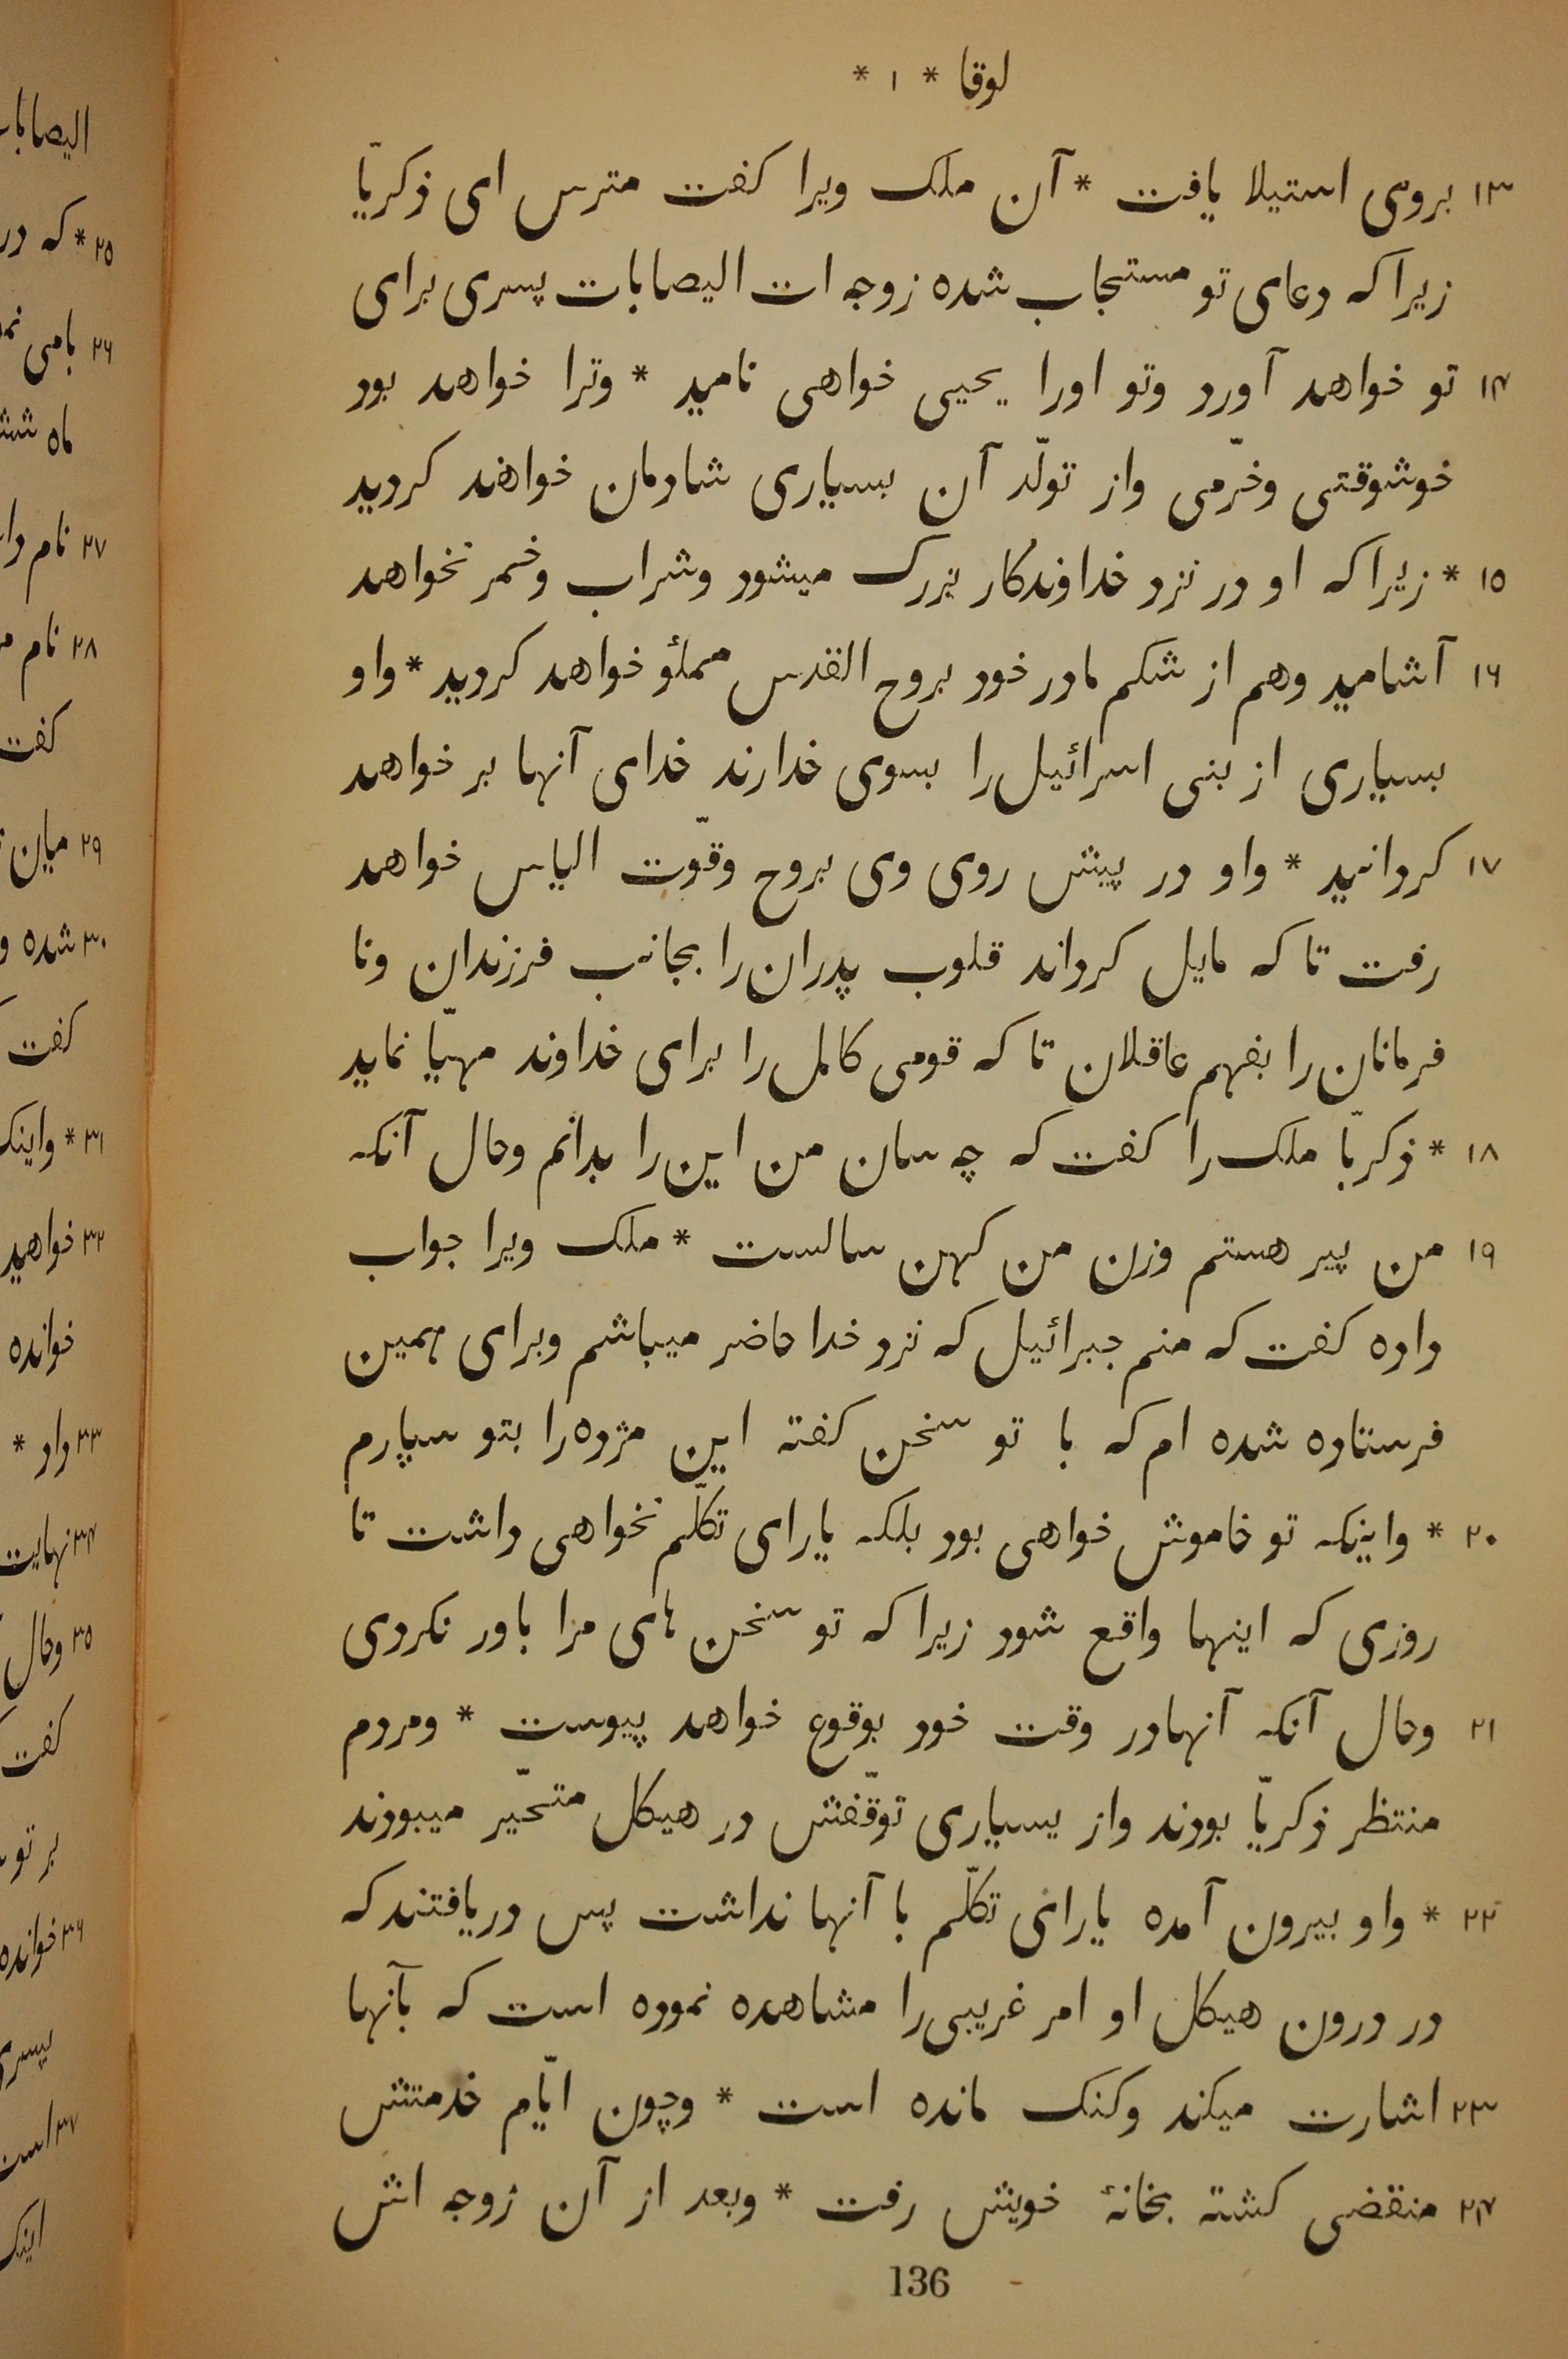 لوقا * ۱ *
۱۳ بروی استیلا یافت * آن ملک ویرا کفت مترس ای ذکریّا
زیرا که دعای تو مستجاب شده زوجه ات الیصابات پسری برای
۱۴ تو خواهد آورد وتو اورا یحیی خواهی نامید * وترا خواهد بود
خوشوقتی وخرّمی واز تولّد آن بسیاری شادمان خواهند کردید
۱۵ * زیرا که او در نزد خداوندکار بزرک میشود وشراب وخمر نخواهد
۱۶ آشامید وهم از شکم مادر خود بروح القدس مملؤ خواهد کردید * واو
بسیاری از بنی اسرائیل را بسوی خدارند خدای آنها بر خواهد
۱۷ کردانید * واو در پیش روی وی بروح وقوّت الیاس خواهد
رفت تا که مایل کرداند قلوب پدران را بجانب فرزندان ونا
فرمانان را بفهم عاقلان تا که قومی کامل را برای خداوند مهیّا نماید
۱۸ * ذکریّا ملک را کفت که چه سان من این را بدانم وحال آنکه
۱۹ من پیر هستم وزن من کهن سالست * ملک ویرا جواب
داده کفت که منم جبرائیل که نزد خدا حاضر میباشم وبرای همین
فرستاده شده ام که با تو سخن کفته این مژده را بتو سپارم
۲۰ * واینکه تو خاموش خواهی بود بلکه یارای تکلّم نخواهی داشت تا
روزی که اینها واقع شود زیرا که تو سخن های مرا باور نکردی
۲۱ وحال آنکه آنهادر وقت خود بوقوع خواهد پیوست * ومردم
منتظر ذکریّا بودند واز بسیاری توقّفش در هیکل متحیّر میبودند
۲۲ * واو بیرون آمده یارای تکلّم با آنها نداشت پس دریافتند که
در درون هیکل او امر غریبی را مشاهده نموده است که بآنها
۲۳ اشارت میکند وکنک مانده است * وچون ایّام خدمتش
۲۴ منقضی کشته بخانهٔ خویش رفت * وبعد از آن زوجه اش
136